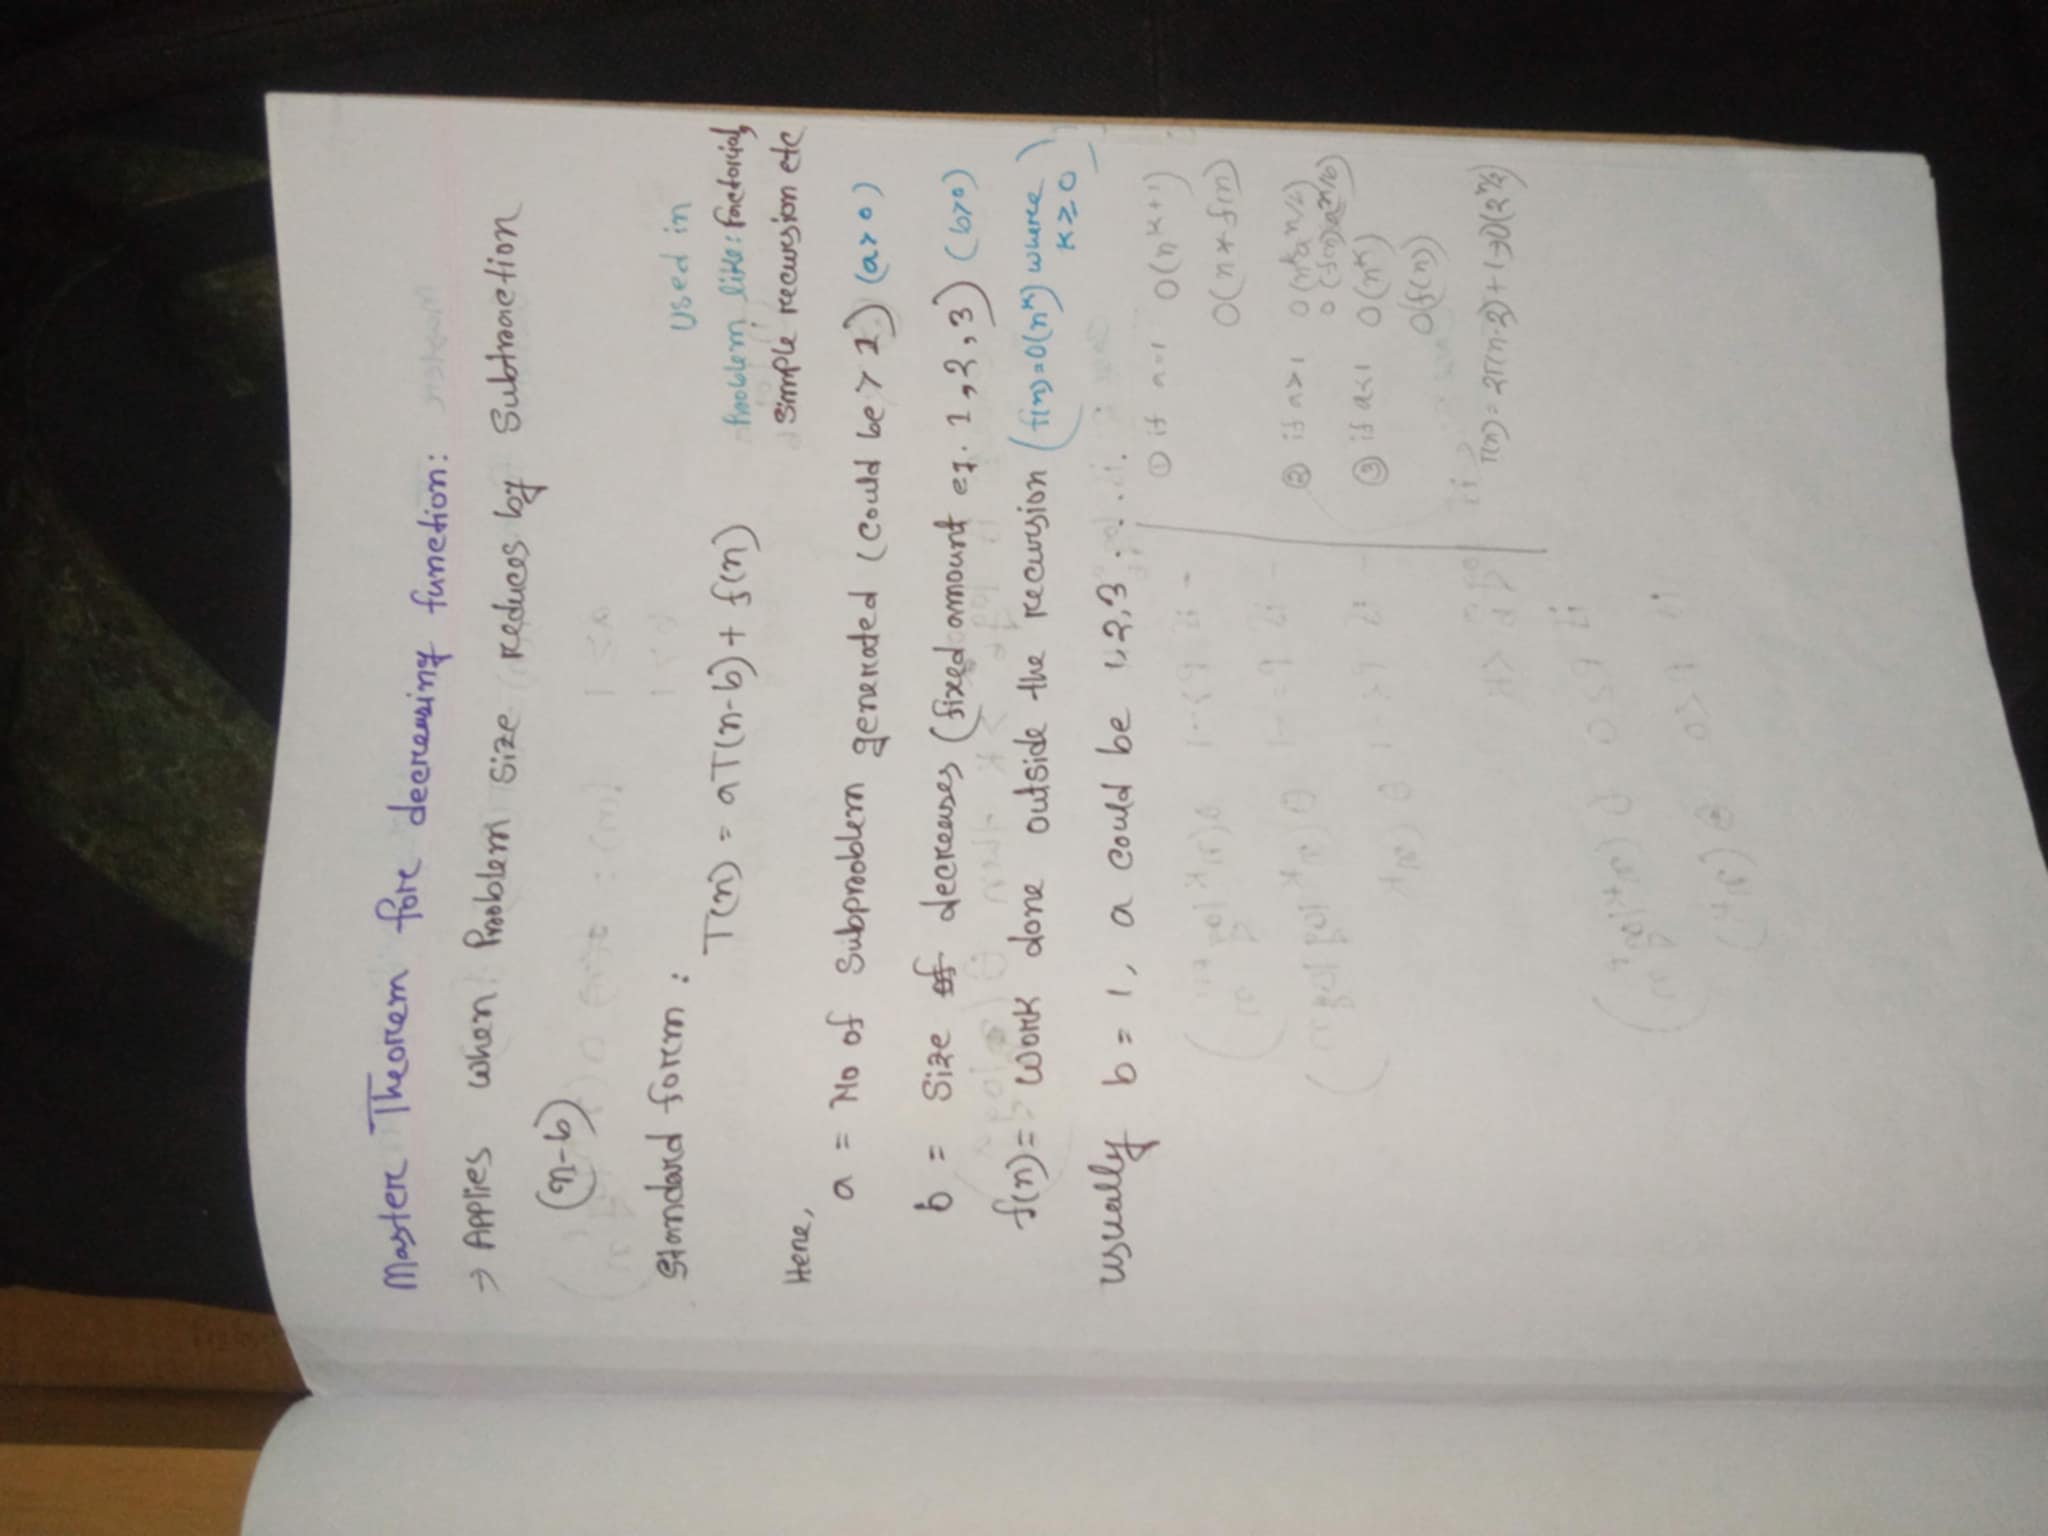 Master Theorem fore decreasing function:
→ Applies when Problem Size reduces by Subtraction
(n-b)
Standard form :
T(n) = aT(n-b) + f(n)
Used in
Problem like: factorial,
Simple recursion etc
Here,
a = No of Subproblem generated (Could be > 1) (a>0)
b = Size of decreases (fixed amount eg. 1,2,3) (b>0)
f(n) = Work done outside the recursion (f(n)=O(n^k) where
k≥0)
usually b = 1, a could be 1,2,3 . . . .
① if a=1 O(n^k+1)
O(n*f(n)
② if a>1 O(n^k a^n/b)
O(f(n)a^n/b)
③ if a<1 O(n^k)
O(f(n))
T(n) = 2T(n-2)+1→O(2^n/2)